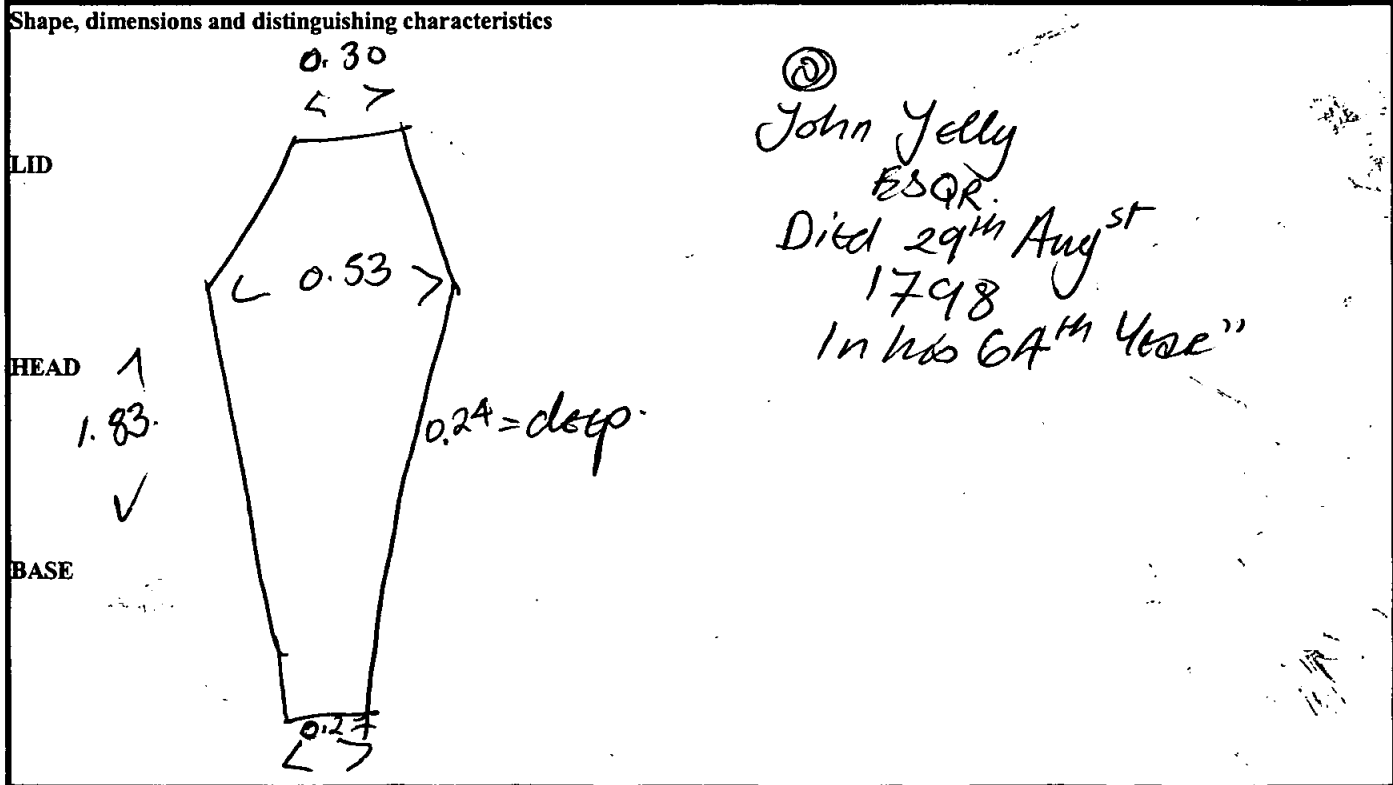 Shape, dimensions and distinguishing characteristics
0.30
< >
LID
< 0.53 >
HEAD
1.83.
0.24 = deep.
BASE
0.27
< >
John Yelly
ESQR.
Died 29th Augst
1798
In his 64th Year"